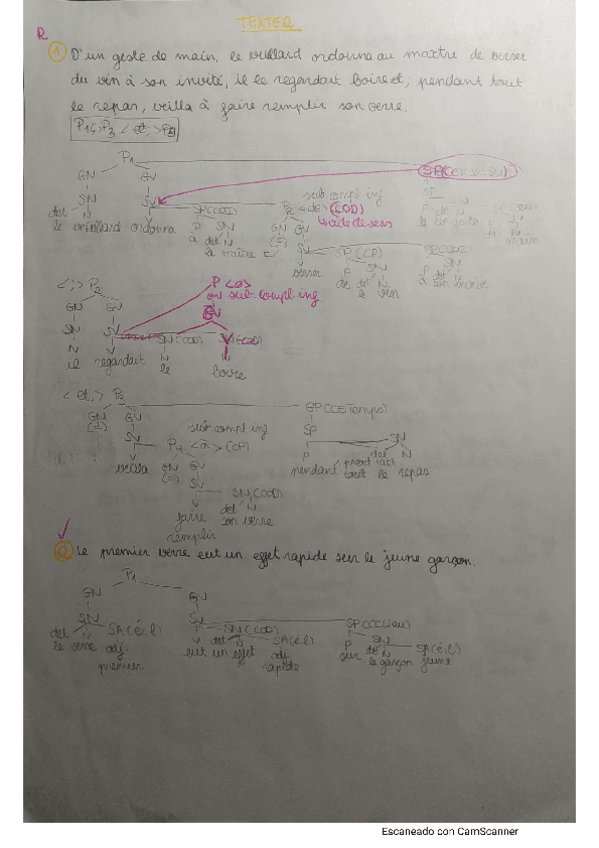 R
TEXTER
① D'un geste de main, le vieillard ordonna au maître de verser
du vin à son invité, il le regardait boire et, pendant tout
le repas, veilla à faire remplir son verre.
P1 <;> P2 <et,> P3
P1
GN GV
SN SV SP(COI) P2 <de> (COD) sub. compl. inf
det N
le vieillard ordonna
P SN
à det N
le maître
GN GV
SV SP(CP)
verser
P SN
de det N
le vin
SP
P SN
de un geste
N
main
P det N
à son invité
<;> P2 P <ø>
sub. compl. inf
GN GV
SN SV SN(COD)
N N
il regardait le boire
<et,> P3 GP(CCTemps)
GN GV SP
SV sub. compl. inf
P4 <à> (CP) P SN
veilla GN GV det N
pendant tout le repas
SV SN(COD)
faire det N
remplir son verre
② Le premier verre eut un effet rapide sur le jeune garçon.
P1
GN GV
SN SV SN(COD) SP(CCLieu)
det N SA(é.l) det N SA(é.l) P SN
le verre adj. eut un effet adj. sur det N SA(é.l)
premier rapide le garçon jeune
Escaneado con CamScanner